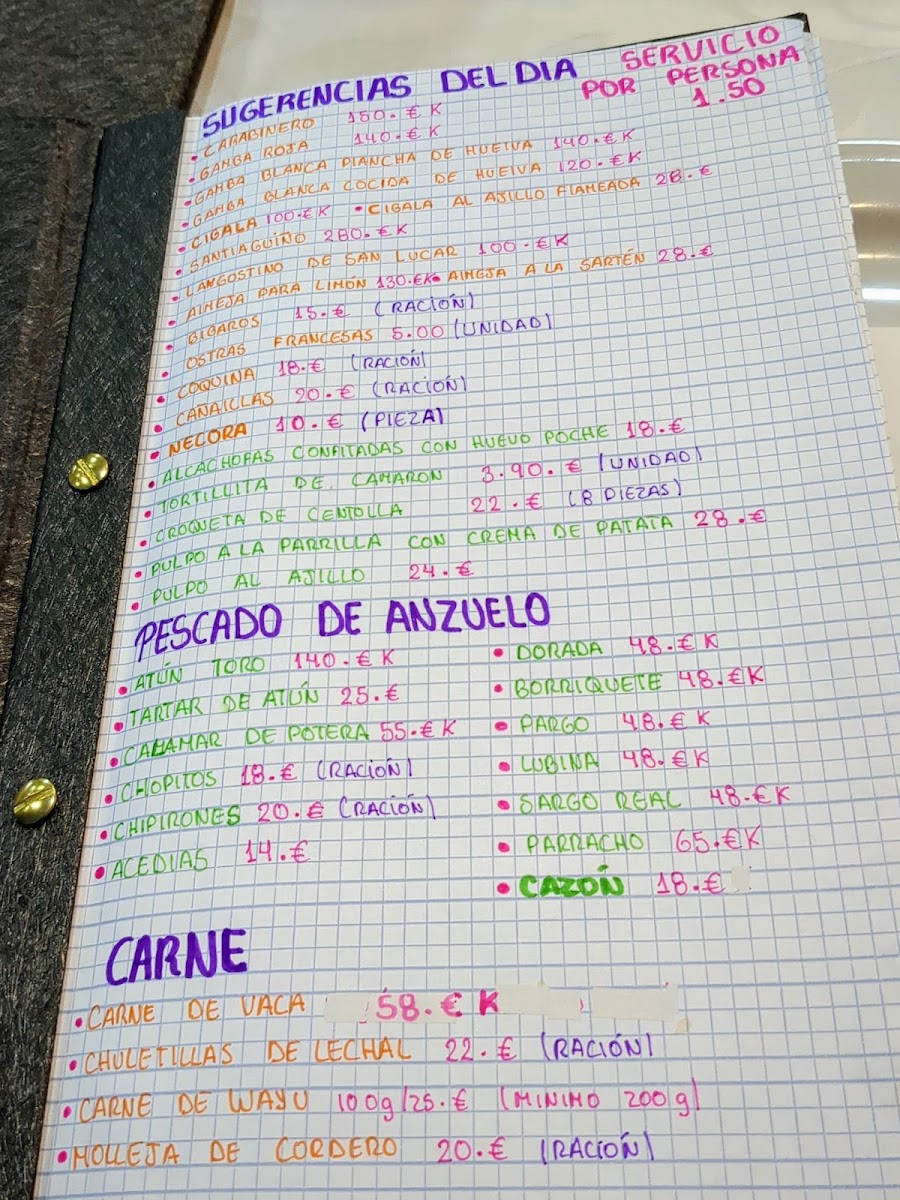 SUGERENCIAS DEL DIA
SERVICIO
POR PERSONA
1.50
• CARABINERO 150.€ K
• GAMBA ROJA 140.€ K
• GAMBA BLANCA PLANCHA DE HUELVA 140.€ K
• GAMBA BLANCA COCIDA DE HUELVA 120.€ K
• CIGALA 100.€ K • CIGALA AL AJILLO FLAMEADA 28.€
• SANTIAGUIÑO 280.€ K
• LANGOSTINO DE SAN LUCAR 100.€ K
• ALMEJA PARA LIMÓN 130.€K • ALMEJA A LA SARTÉN 28.€
• BIGAROS 15.€ (RACIÓN)
• OSTRAS FRANCESAS 5.00 (UNIDAD)
• COQUINA 18.€ (RACIÓN)
• CANAILLAS 20.€ (RACIÓN)
• NECORA 10.€ (PIEZA)
• ALCACHOFAS CONFITADAS CON HUEVO POCHE 18.€
• TORTILLITA DE CAMARON 3.90.€ (UNIDAD)
• CROQUETA DE CENTOLLA 22.€ (8 PIEZAS)
• PULPO A LA PARRILLA CON CREMA DE PATATA 28.€
• PULPO AL AJILLO 24.€
PESCADO DE ANZUELO
• ATÚN TORO 140.€ K
• TARTAR DE ATÚN 25.€
• CALAMAR DE POTERA 55.€ K
• CHOPITOS 18.€ (RACIÓN)
• CHIPIRONES 20.€ (RACIÓN)
• ACEDIAS 14.€
• DORADA 48.€ K
• BORRIQUETE 48.€K
• PARGO 48.€ K
• LUBINA 48.€ K
• SARGO REAL 48.€K
• PARRACHO 65.€K
• CAZÓN 18.€
CARNE
• CARNE DE VACA 58.€ K
• CHULETILLAS DE LECHAL 22.€ (RACIÓN)
• CARNE DE WAYU 100g/25.€ (MINIMO 200g)
• MOLLEJA DE CORDERO 20.€ (RACIÓN)